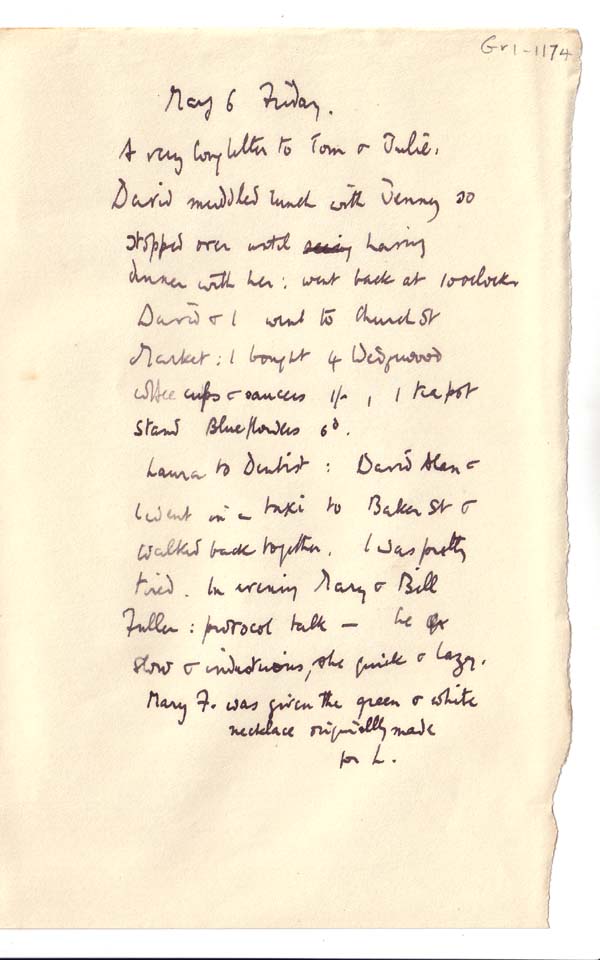 Gr1-1174
May 6 Friday.
A very long letter to Tom & Julie.
David muddled lunch with Jenney so
stopped over until having
dinner with her: went back at 10 oclock.
David & I went to Church St
Market: I bought 4 Wedgwood
coffee cups & saucers 1/-, 1 teapot
stand Blue flowers 6d.
Laura to Dentist: David Alan &
I went in a taxi to Baker St &
walked back together. I was pretty
tired. In evening Mary & Bill
Fuller: protocol talk — he
slow & industrious, she quick & lazy.
Mary F. was given the green & white
necklace originally made
for L.